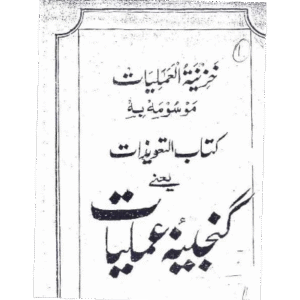 خزینۃ العملیات
موسومہ بہ
کتاب التعویذات
یعنی
گنجینۂ عملیات